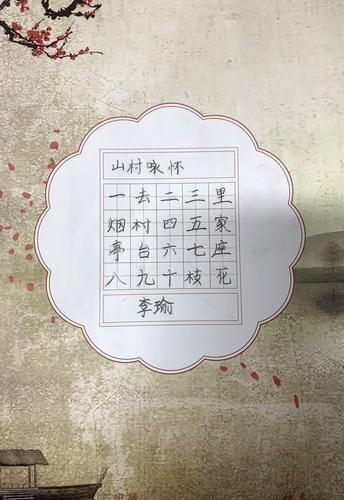 山村咏怀
一去二三里
烟村四五家
亭台六七座
八九十枝花
李瑜